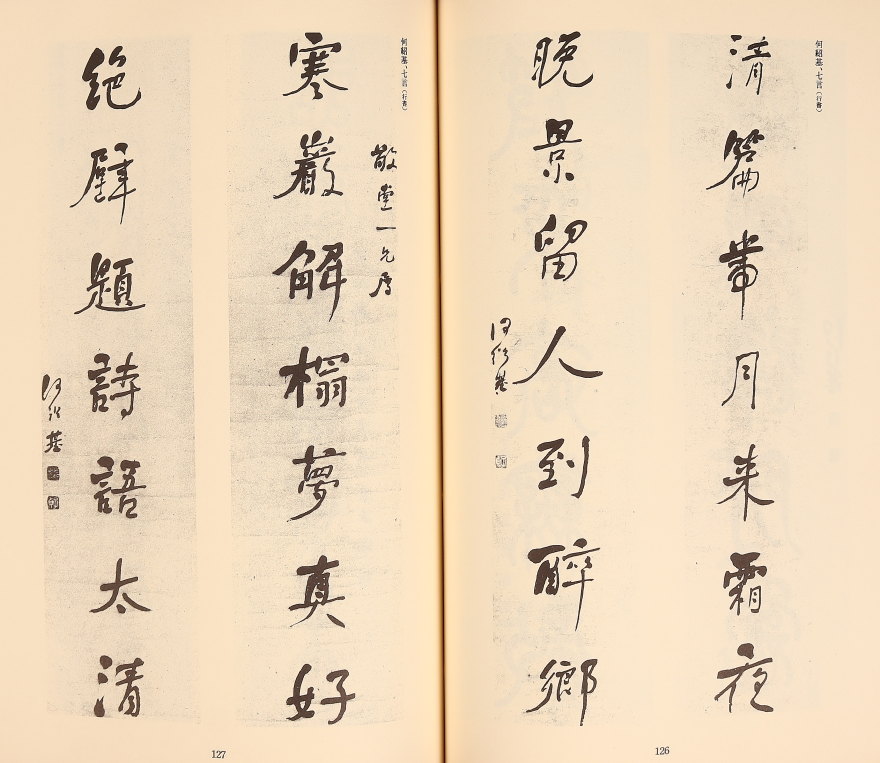 何紹基、七言（行書）
清帶月来霜夜
晚景留人到醉鄉
何紹基
126
何紹基、七言（行書）
堂一兄属
寒巖解榻夢真好
绝壁題詩語太清
何紹基
127